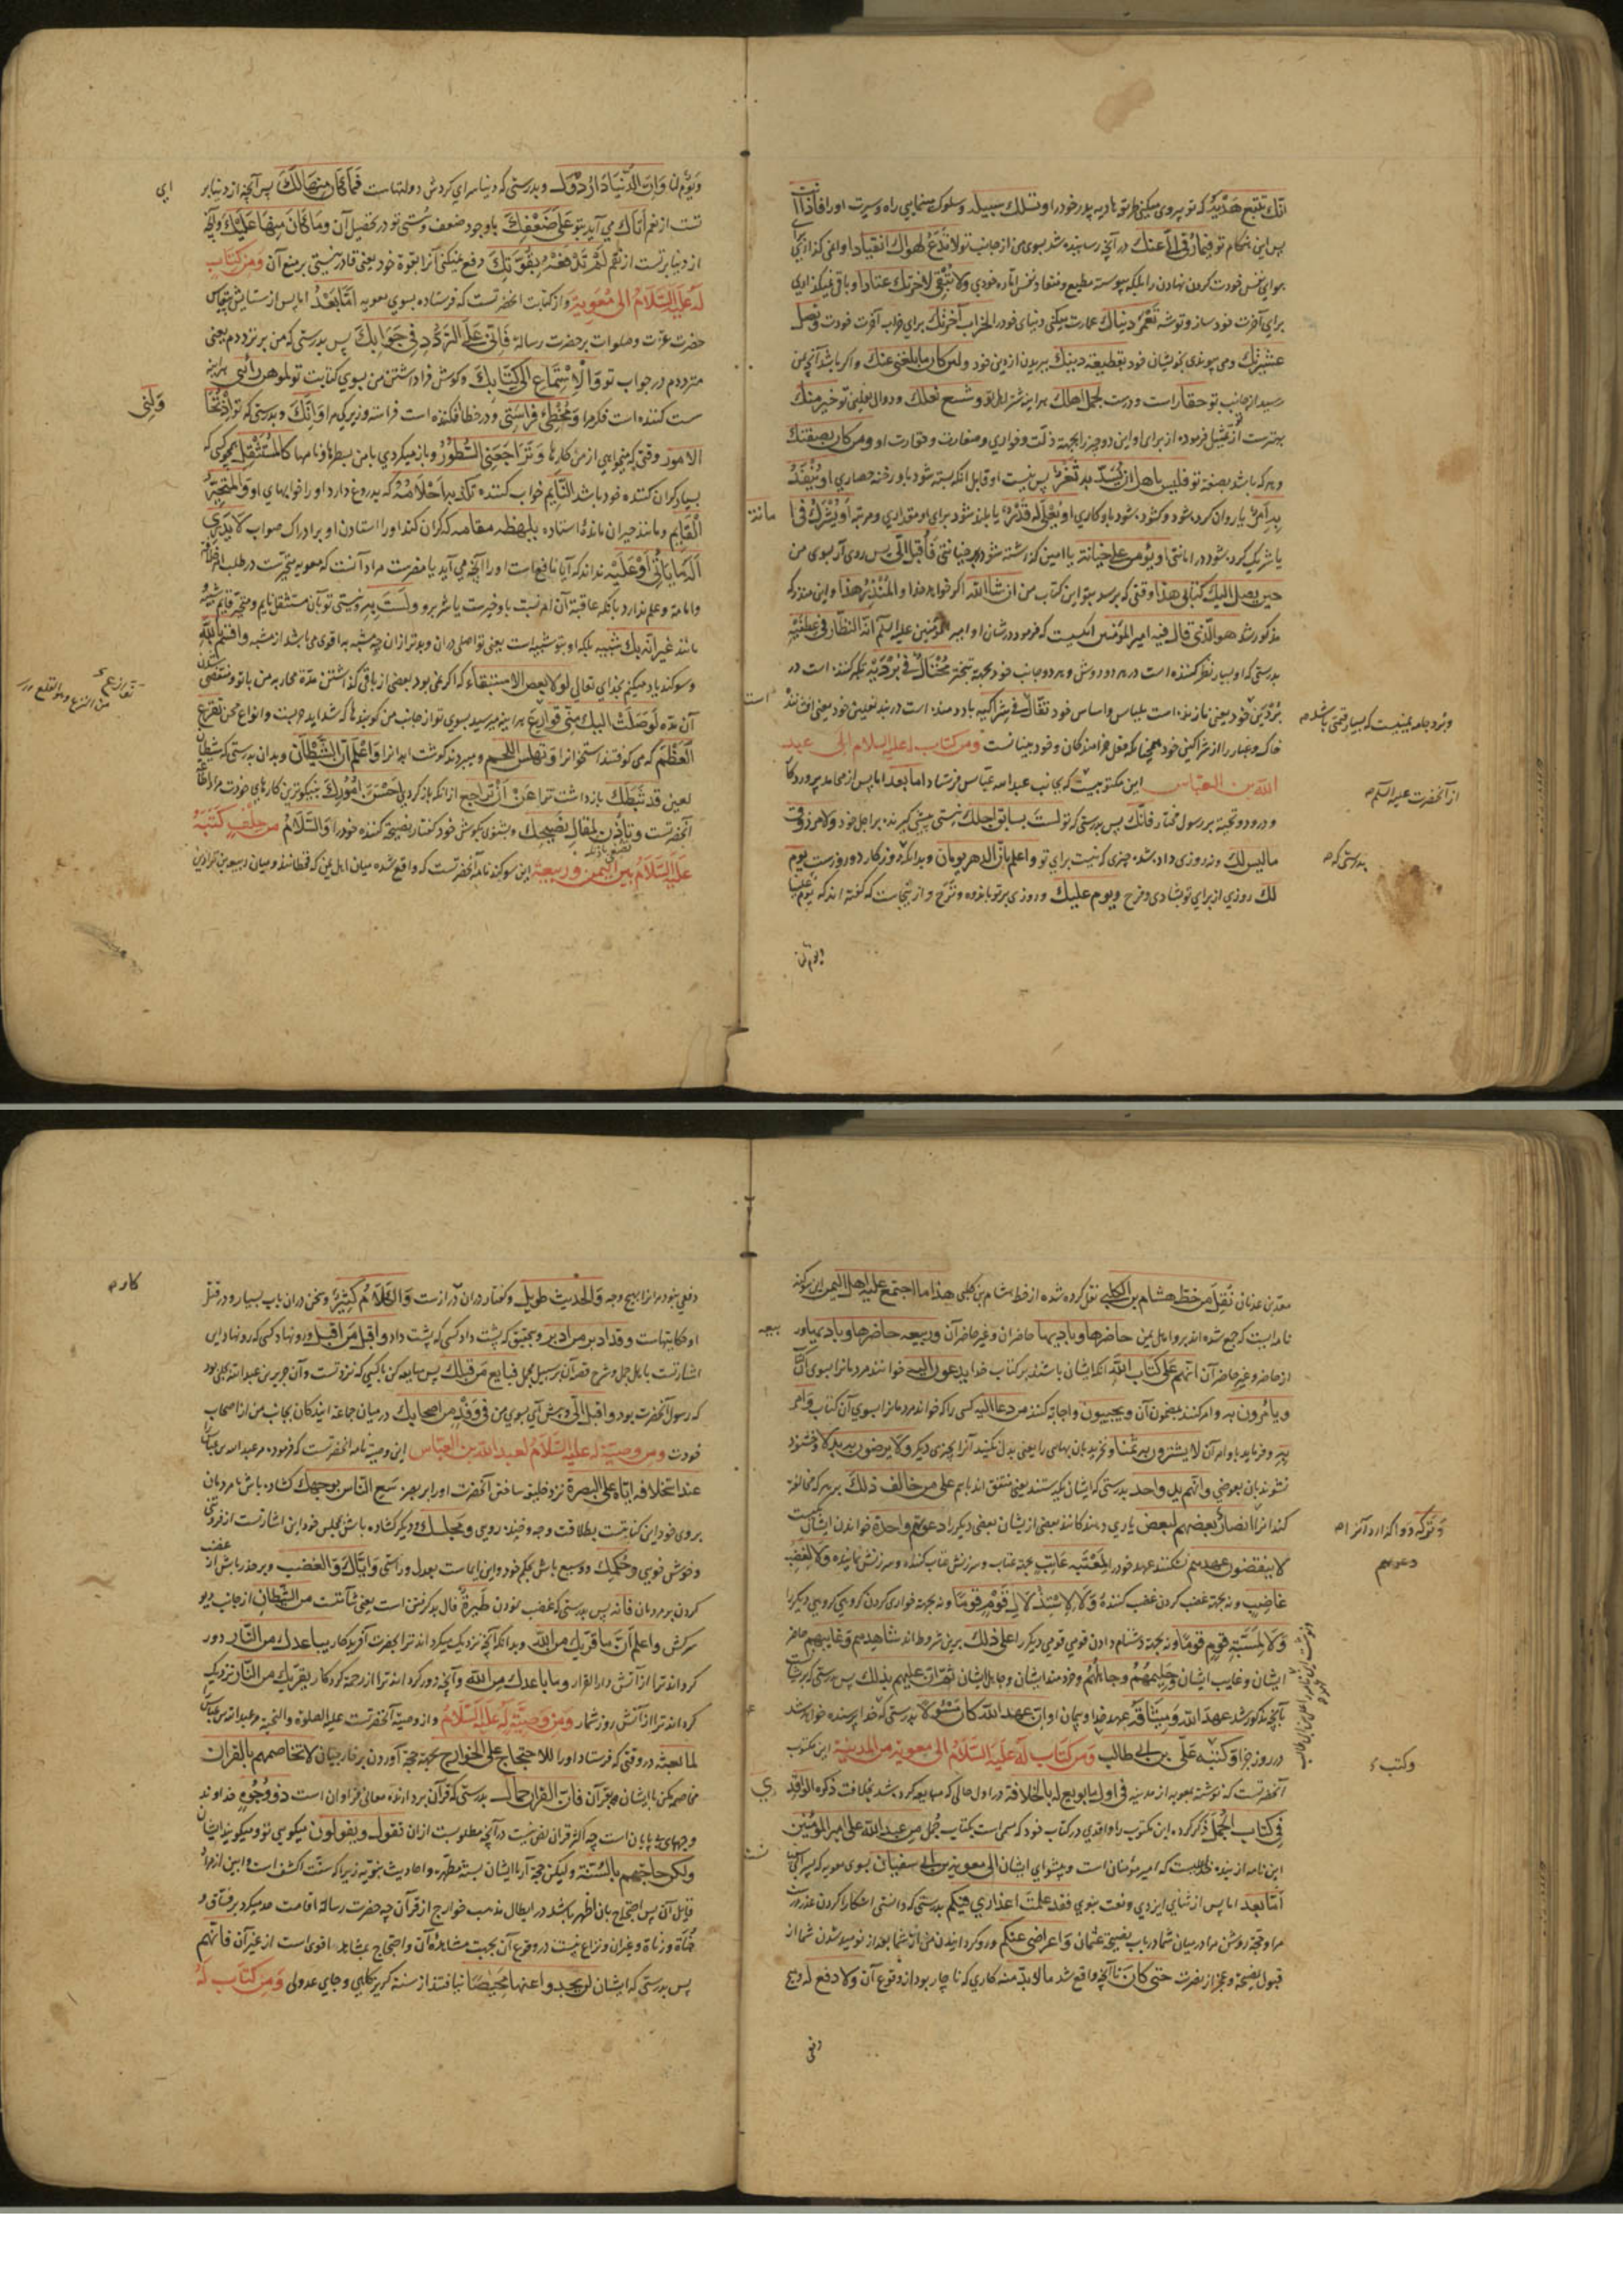 انّك تتّبع هديه كه تو پيروى ميكنى طريقه پدر خود را و تسلك سبيله و سلوك مينمايى راه و سيرت او را فاذا انت
پس اين هنگام تو فيما رُقّي الىّ عنك در آنچه رسانيده شد بسوى من از جانب تو لا تدع لهواك انقيادا وا نمى گذارى براى
هواى نفس خودت گردن نهادن را بلكه پيوسته مطيع و منقاد نفس اماره خودى ولا تبقي لآخرتك عتادا و باقى نميگذارى
براى آخرت خود ساز و توشه تعمر دنياك عمارت ميكنى دنياى خود را بخراب آخرتك براى خراب آخرت خودت و تصل
عشيرتك و مى پيوندى بخويشان خود بقطيعة دينك ببريدن از دين خود ولئن كان ما بلغني عنك و اگر باشد آنچه من
رسيد از جانب تو حقا راست و درست لجمل اهلك هر اينه شتر اهل تو و شسع نعلك و دوال نعلين تو خير منك
بهترست از تو تمثيل فرموده از براى او اين دو چيز را بجهة ذلّت و خوارى و حقارت او ومن كان بصفتك
و هر كه باشد بصفت تو فليس باهل ان يسدّ به ثغر پس نيست او قابل آنكه بسته شود باو رخنه حصارى او ينفذ
به امر يا روان كرده شود باو كارى او يعلى له قدر يا بلند شود براى او مقدارى و مرتبه او يشرك في امانة
يا شريك كرده شود در امانتى او يؤمن على خيانة يا امين گذاشته شود بر خيانتى فاقبل الىّ پس روى آر بسوى من
حين يصل اليك كتابي هذا وقتى كه برسد بتو اين كتاب من ان شا الله اگر خواهد خدا والمنذر هذا و اين منذر كه
مذكور شد هو الّذي قال فيه امير المؤمنين آنكسيست كه فرمود در شان او امير المؤمنين عليه السلام انه لنظّار في عطفيه
بدرستى كه او بسيار نظر كننده است در هر دو دوش و هر دو جانب خود بجهة تبختر مختال في برديه تكبر كننده است در
بردين خود يعنى نازنده است بلباس و اساس خود تفّال في شراكيه
خاك و غبار را از شراكين خود ومن كتاب له عليه السلام الى عبد
الله بن العبّاس اين مكتوبيست كه بجانب عبد الله عباس فرستاد اما بعد اما پس از محامد پروردگار
و درود و تحيت بر رسول مختار فانّك پس بدرستى كه تو لست بسابق اجلك نيستى پيشى گيرنده بر اجل خود ولا مرزوق
ما ليس لك و نه روزى داده شده چيزى كه نيست براى تو واعلم بانّ الدهر يومان و بدانكه روزگار دو روزست يوم
لك روزي از براي تو بشادى و فرح ويوم عليك و روزى بر تو باندوه و ترح و از ينجاست كه گفته اند كه يوم علينا
ويوم لنا
و برد جامه يمنيست كه بسيار قيمتى باشد
از آنحضرت عليه السلام
بدرستى كه
ويوم لنا وان الدّنيا دار دول و بدرستى كه دنيا سراى گردش دولتهاست فما كان منها لك پس آنچه از دنيا بر
تست از نعم اتاك مى آيد بتو على ضعفك باوجود ضعف و سستى تو در تحصيل آن وما كان منها عليك و آنچه
از دنيا بر تست از نقم لم تدفعه بقوتك دفع نميكنى آنرا بقوة خود يعنى قادر نيستى بر منع آن ومن كتاب
له عليه السلام الى معوية و از كتابت آنحضرتست كه فرستاده بسوى معويه امّا بعد اما پس از ستايش بيقياس
حضرت عزّت و صلوات بر حضرت رسالة فاني على التردّد في جوابك پس بدرستى كه من بر تردّدم يعنى
متردّدم در جواب تو والاستماع الى كتابك و گوش فرا داشتن من بسوى كتابت تو لموهن رأيي هراينه
سست كننده است فكر مرا ومخطئ فراستي و در خطا افكننده است فراسه و زيركى مرا وانك و بدرستى كه تو اذ تحاولني
الامور وقتى كه ميخواهى از من كارها وتراجعني السطور و باز ميگردى با من بسطرها و نامها كالمستثقل
النّايم خواب كننده تكذبه احلامه كه بدروغ دارد او را خوابهاى او والمتحيّر
القايم و مانند حيران مانده استاده يبهظه مقامه كه گران كند او را استادن او بر ادراك صواب لا يدري
اله ما ياتي او عليه نداند كه آيا نافع است او را آنچه مى آيد يا مضرت مراد آنست كه معويه متحيرست در طلب امر خلافة
مانند غير انّه بك شبيه بلكه او بتو شبيه است واقسم بالله
و سوگند ياد ميكنم بخداى تعالى لولا بعض الاستبقاء كه اگر نمى بود بعضى از باقى گذاشتن
لوصلت اليك منّي قوارع هراينه ميرسيد بسوى تو از جانب من كوبندها كه شدايد حربست و انواع محن تقرع
العظم كه مى كوفتند استخوانرا وتهلس اللحم و ميبردند گوشت ابدانرا واعلم ان الشيطان و بدان بدرستى كه شيطان
لعين قد ثبّطك بازداشت ترا عن ان تراجع از آنكه بازگردى احسن امورك بنيكوترين كارهاى خودت
آنحضرتست وتاذن لمقال نصيحك و بشنوى بگوش خود گفتار نصيحت كننده خود را والسّلام من حلف كتبه
عليه السّلام بين اليمن وربيعة اين سوگند نامه آنحضرتست كه واقع شده ميان اهل يمن كه قحطانند و ميان ربيعه بن نزار بن
معد بن عدنان نقل من خط هشام بن الكلبي نقل كرده شده از خط هشام بن كلبى هذا ما اجتمع عليه اهل اليمن اين سوگند
نامه ايست كه جمع شده اند بر او اهل يمن حاضرها وباديها حاضران و غير حاضر آن وربيعه حاضرها وباديها و ربيعه
از حاضر و غير حاضر آن انّهم على كتاب الله آنكه ايشان باشند بر كتاب خدا يدعون اليه خوانند مردمانرا بسوى آن
ويأمرون به و امر كنند بمضمون آن ويجيبون و اجابت كنند من دعا اليه كسى را كه خواند مردمانرا بسوى آن كتاب وامر
به و فرمايد باوامر آن لا يشترون به ثمنا و نخرند بان بهايى را يعنى بدل نكنند آنرا بچيزى ديگر ولا يرضون به بدلا و خشنود
نشوند بان بعوضى وانّهم يد واحدة بدرستى كه ايشان يكدستند يعنى متفق اند باهم على من خالف ذلك بر هر كه مخالفت
كند آنرا انصار بعضهم لبعض يارى دهندگانند بعضى از ايشان بعضى ديگر را دعوتهم واحدة خواندن ايشان يكيست
لا ينقضون عهدهم نشكنند عهد خود را لمعتبة عاتب بجهة عتاب و سرزنش عتاب كننده و سرزنش نماينده ولا لغضب
غاضب و نه بجهة غضب كردن غضب كننده ولا لاستذلال قوم قوما و نه بجهة خوارى كردن گروهى گروهى ديگر را
ولا لمسبّة قوم قوما و نه بجهة دشنام دادن قومى قومى ديگر را على ذلك برين شرط اند شاهدهم وغايبهم حاضر
ايشان و غايب ايشان وحليمهم وجاهلهم و خردمند ايشان و جاهل ايشان ثم ان عليهم بذلك پس بدرستى كه بر ايشانست
بآنچه مذكور شد عهد الله وميثاقه عهد خدا و پيمان او ان عهد الله كان مسئولا بدرستى كه عهد خدا پرسيده خواهد شد
در روز جزا وكتبه علي بن ابي طالب ومن كتاب له عليه السّلام الى معوية من المدينة اين مكتوب
آنحضرتست كه نوشته بمعويه از مدينه في اول ما بويع له بالخلافة در اول حالى كه مبايعه كرده شد بخلافت ذكره الواقدي
في كتاب الجمل ذكر كرده اين مكتوب را واقدى در كتاب خود كه مسمى است بكتاب جمل من عبد الله علي امير المؤمنين
اين نامه از بنده خداست كه امير مؤمنان است و پيشواى ايشان الى معوية بن ابي سفيان بسوى معويه كه پسر ابى سفيانست
امّا بعد اما پس از ثناى ايزدى و نعت نبوى فقد علمت اعذاري فيكم بدرستى كه دانستى آشكارا كردن عذر
مرا و حجة روشن مرا در ميان شما در باب نصيحت عثمان واعراضي عنكم و رو گردانيدن من از شما بعد از نوميد شدن شما از
قبول نصيحة و عجز از نصرت حتى كان تا آنچه واقع شد ما لا بدّ منه كارى كه ناچار بود از وقوع آن ولا دفع له و هيچ
دفعى
وكتب
دفعى نبود مرا نرا بهيچ وجه والحديث طويل و گفتار دران درازست والكلام كثير و سخن دران باب بسيار و در قتل
او حكايتهاست وقد ادبر من ادبر و بتحقيق كه پشت داد كسى كه پشت داد واقبل من اقبل و رو نهاد كسى كه رو نهاد اين
اشارتست باهل جمل و شرح قصه آن بر سبيل مجمل فبايع من قبلك پس مبايعه كن با كسى كه نزد تست و آن جرير بن عبد الله بجلى بود
كه رسول آنحضرت بود واقبل الىّ و پيش آى بسوى من في وفد من اصحابك در ميان جماعة آيندگان بجانب من از اصحاب
خودت ومن وصية له عليه السّلام لعبد الله بن العبّاس اين وصية نامه آنحضرتست كه فرموده مر عبد الله بن عباس را
عند استخلافه اياه على البصرة نزد خليفه ساختن آنحضرت او را بر بصره سع النّاس بوجهك گشاده باش با مردمان
بروى خود اين كنايتست بطلاقت وجه و خنده رويى ومجلسك و ديگر گشاده باش بمجلس خود اين اشارتست از فروتنى
و خوش خويى وحكمك و وسيع باش بحكم خود و اين ايماست بعدل و راستى واياك والغضب و بر حذر باش از غضب
كردن بر مردمان فانه پس بدرستى كه غضب نمودن طيرة فال بد گرفتن است يعنى شآمتست من الشّيطان از جانب ديو
سركش واعلم انّ ما قربك من الله و بدانكه آنچه نزديك ميگرداند ترا بحضرت آفريدگار يباعدك من النّار دور
گرداند ترا از آتش دار القرار وما باعدك من الله و آنچه دور گرداند ترا از رحمة كردگار يقربك من النّار نزديك
گرداند ترا از آتش روز شمار ومن وصيّة له عليه السّلام و از وصية آنحضرتست عليه الصلوة والتحية مر عبد الله بن عباس را
لما بعثه در وقتى كه فرستاد او را للاحتجاج على الخوارج بجهة حجة آوردن بر خارجيان لا تخاصمهم بالقران
مخاصمه مكن با ايشان بقرآن فان القران حمّال بدرستى كه قرآن بردارنده معانى فراوان است ذو وجوه خداوند
وجههاى بى پايان است تقول ويقولون ميگويى تو و ميگويند ايشان
ولكن حاججهم بالسّنة و ليكن حجة آر با ايشان بسنة مطهره و احاديث نبويه زيرا كه سنّت اكشف است
پس بدرستى كه ايشان لن يجدوا عنها محيصا نيافتند از سنة گريزگاهى و جاى عدولى ومن كتاب له